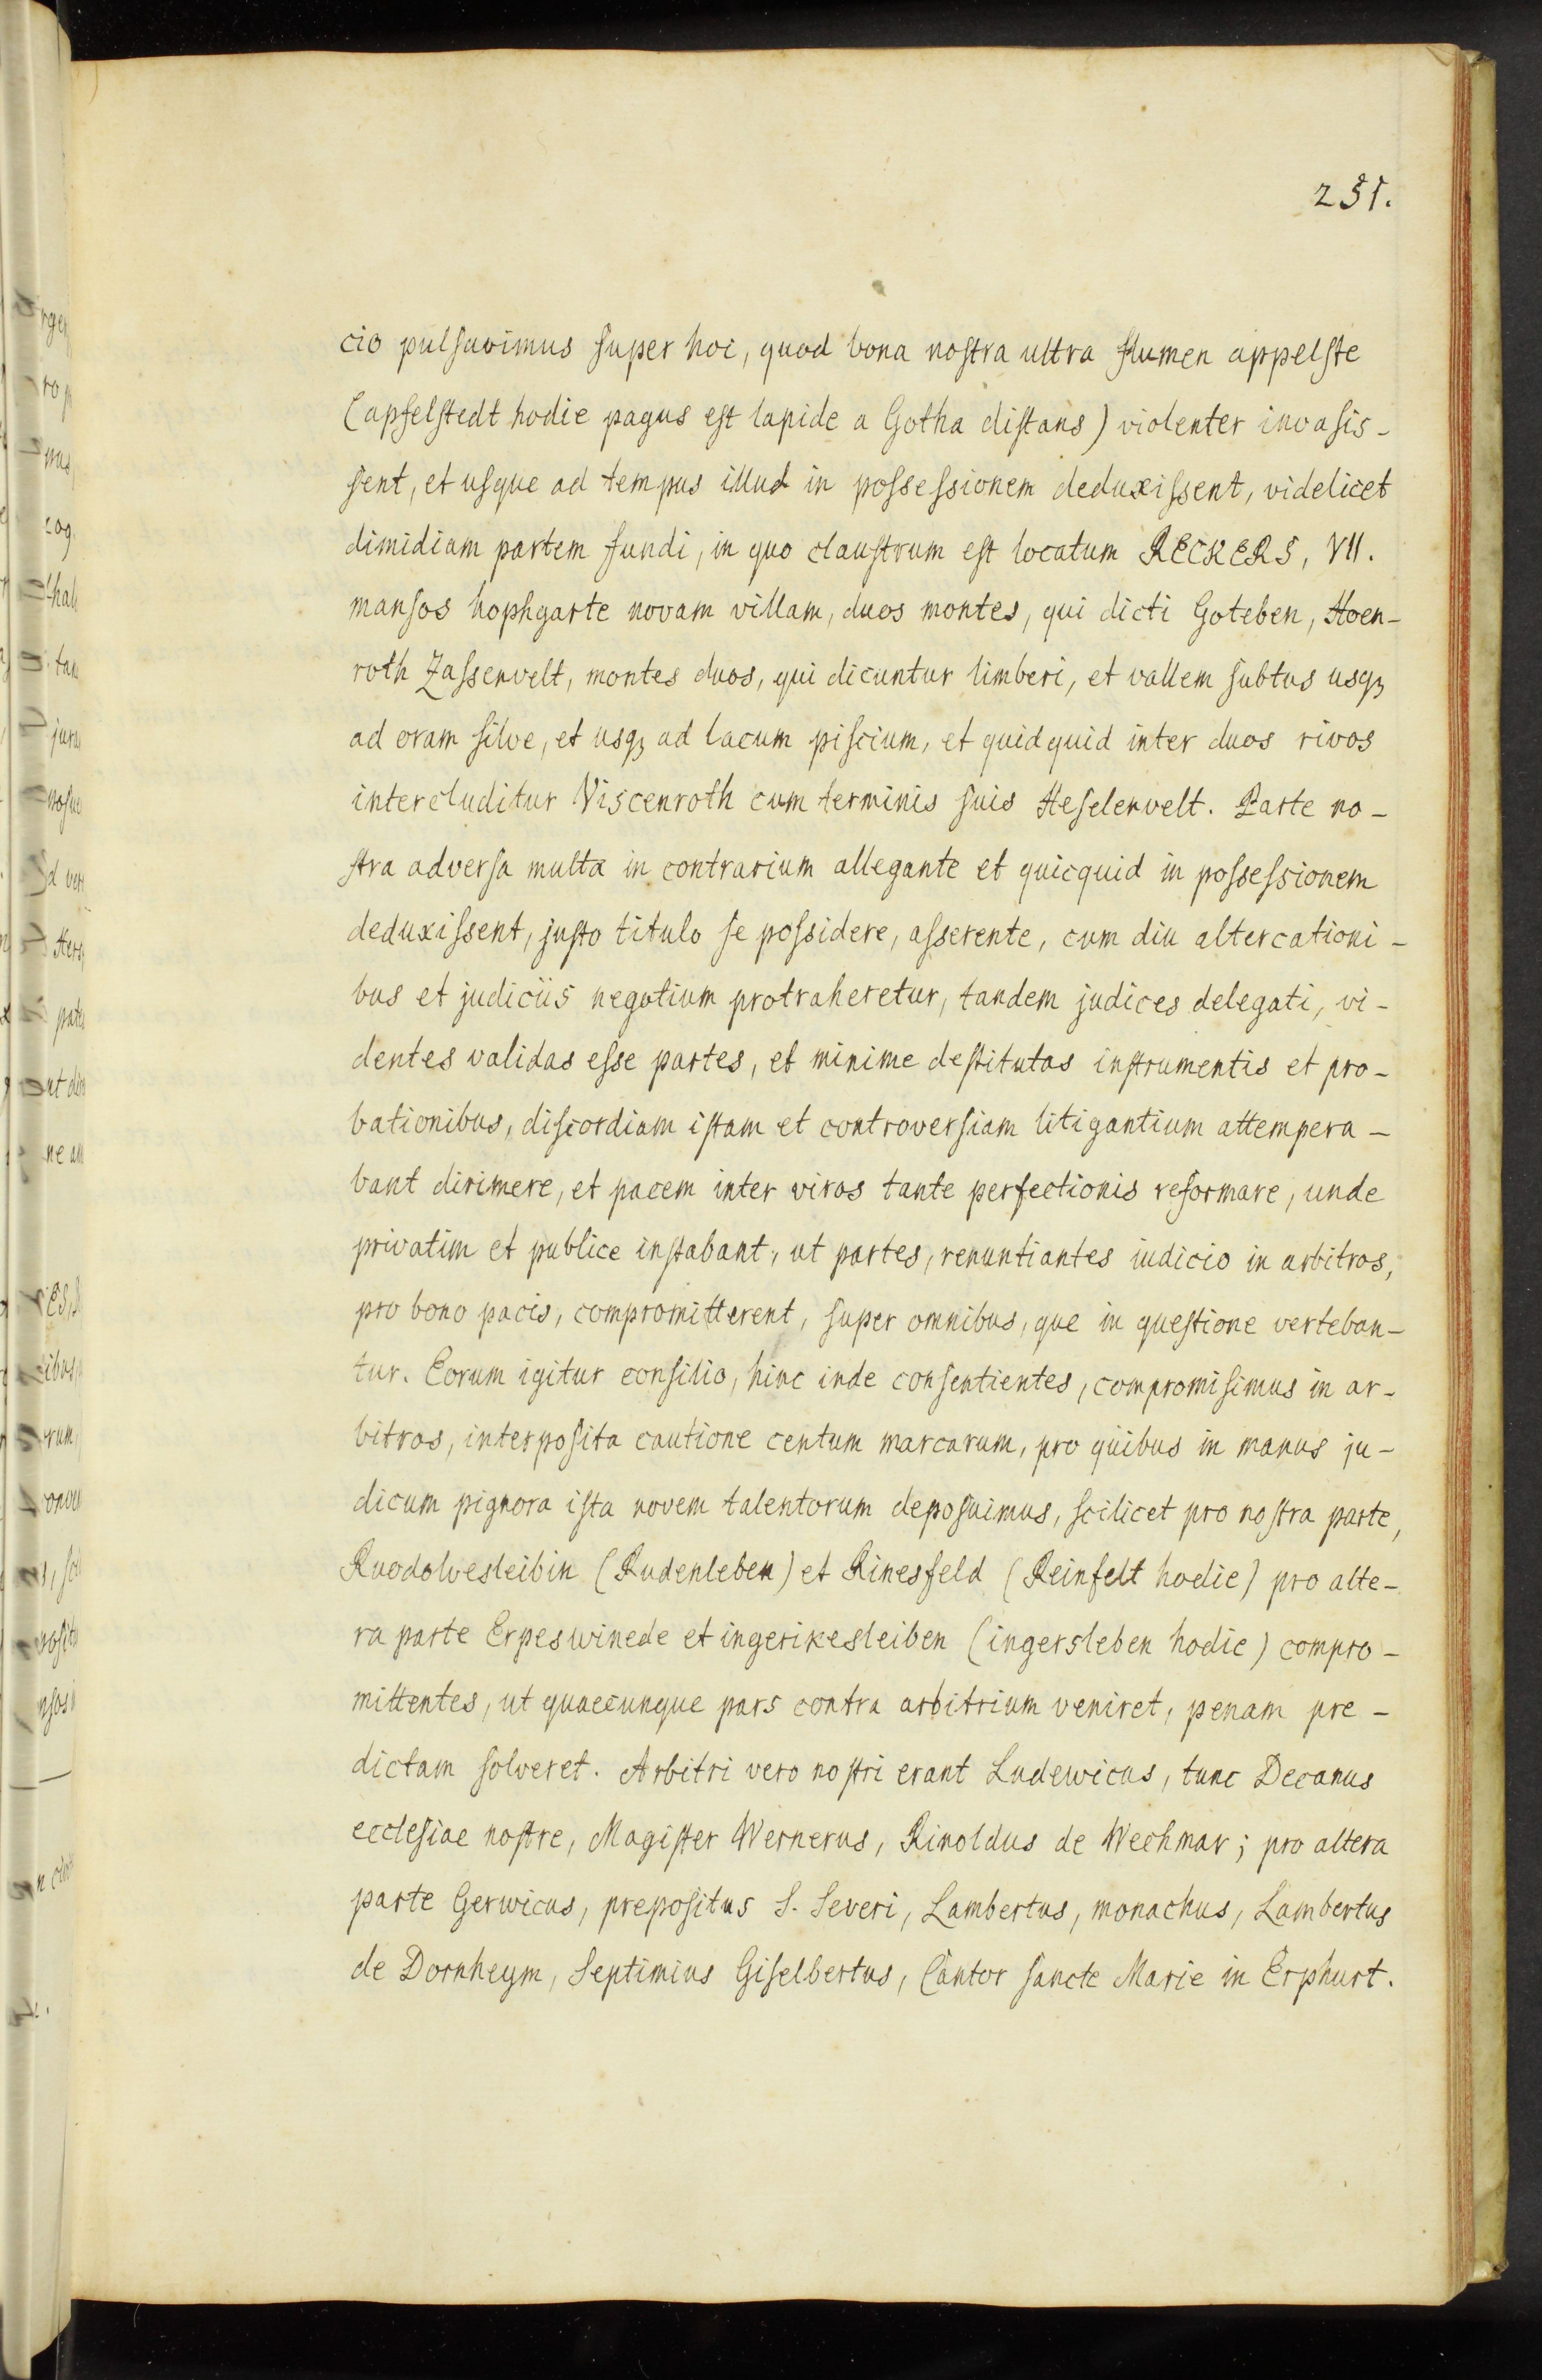 251.
cio pulſavimus ſuper hoc, quod bona noſtra ultra flumen appelſte
(apfelſtedt hodie pagus eſt lapide a Gotha diſtans) violenter invaſis-
ſent, et uſque ad tempus illud in posseſsionem deduxiſsent, videlicet
dimidiam partem fundi, in quo clauſtrum eſt locatum RECKERS, VII.
manſos hophgarte novam villam, duos montes, qui dicti Goteben, Hoen-
roth Zaſservelt, montes duos, qui dicuntur limberi, et vallem ſubtus usqꝫ
ad oram ſilve, et usqꝫ ad lacum piſcium, et quidquid inter duos rivos
intercluditur Viscenroth cum terminis ſuis Heſelervelt. Parte no-
ſtra adverſa multa in contrarium allegante et quicquid in poſseſsionem
deduxiſsent, juſto titulo ſe poſsidere, aſserente, cum diu altercationi-
bus et judiciis negotium protraheretur, tandem judices delegati, vi-
dentes validas eſse partes, et minime deſtitutas inſtrumentis et pro-
bationibus, diſcordiam iſtam et controverſiam litigantium attempera-
bant dirimere, et pacem inter viros tante perfectionis reformare, unde
privatim et publice inſtabant, ut partes, renuntiantes iudicio in arbitros,
pro bono pacis, compromitterent, ſuper omnibus, que in queſtione verteban-
tur. Eorum igitur conſilio, hinc inde conſentientes, compromiſimus in ar-
bitros, interpoſita cautione centum marcarum, pro quibus in manus ju-
dicum pignora iſta novem talentorum depoſuimus, ſcilicet pro noſtra parte,
Ruodolvesleibin (Rudenleben) et Rinesfeld (Reinfelt hodie) pro alte-
ra parte Erpeswinede et ingerikesleiben (ingersleben hodie) compro-
mittentes, ut quaecunque pars contra arbitrium veniret, penam pre-
dictam ſolveret. Arbitri vero noſtri erant Ludewicus, tunc Decanus
eccleſiae noſtre, Magiſter Wernerus, Rinoldus de Wechmar; pro altera
parte Gerwicus, prepoſitus S. Severi, Lambertus, monachus, Lambertus
de Dornheym, Septimius Giſelbertus, Cantor ſancte Marie in Erphurt.